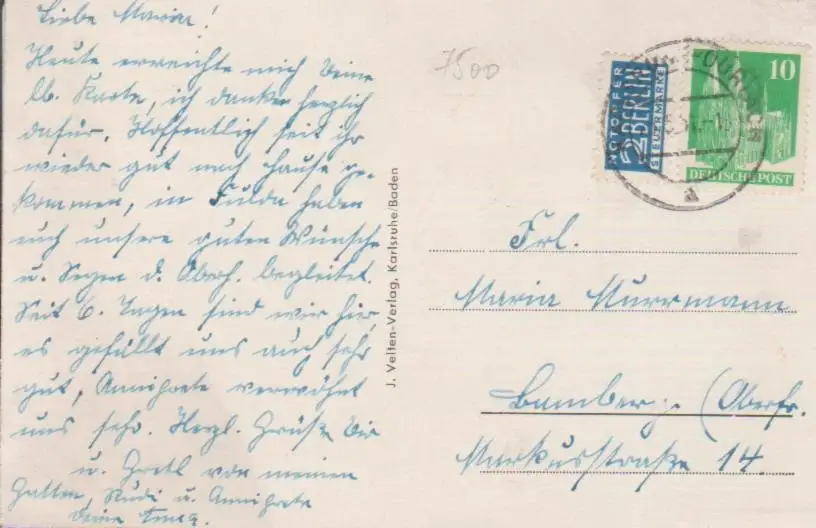 Liebe Maria!
Heute erreichte mich Deine
lb. Karte, ich danke herzlich
dafür. Hoffentlich seit ihr
wieder gut nach Hause ge-
kommen, in Fulda haben
euch unsere guten Wünsche
u. Segen d. Oberh. begleitet.
Seit 6. Tagen sind wir hier,
es gefällt uns auch sehr
gut, Annigrete verwöhnt
uns sehr. Herzl. Grüße Dir
u. Gretl von meinen
Gatten, Rudi u. Annigrete
Deine
7500
NOTOPFER
2 BERLIN
STEUERMARKE
10
DEUTSCHE POST
a
J. Velten-Verlag, Karlsruhe/Baden
Frl.
Maria Murrmann
Bamberg. (Oberfr.
Markusstraße 14.